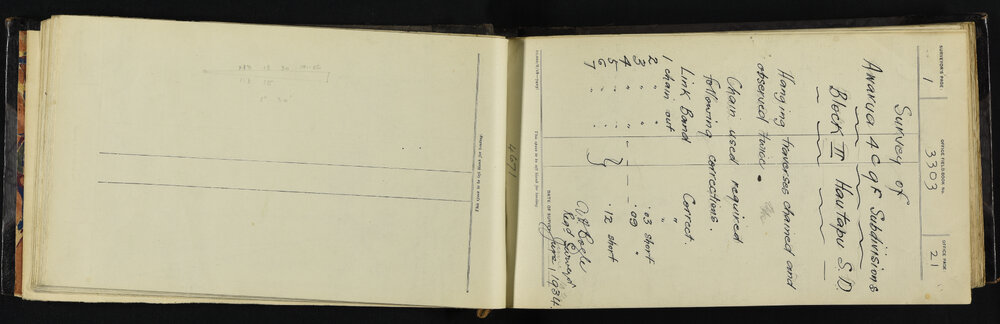 This space to be left blank for binding.
4671
SURVEYOR'S PAGE.
1
OFFICE FIELD-BOOK No.
3303
OFFICE PAGE.
21
Survey of
Awarua 4C 9F Subdivisions
Block II Hautapu S.D.
Hanging traverses chained and
observed twice.
Chain used required
following corrections.
Link Band Correct.
1 chain out "
2 " " .03 short
3 " " .09 "
4 " "
5 " " .12 short
6 " "
7 " "
Regd Surveyr
June, 1934.
DATE OF SURVEY
This space to be left blank for binding.